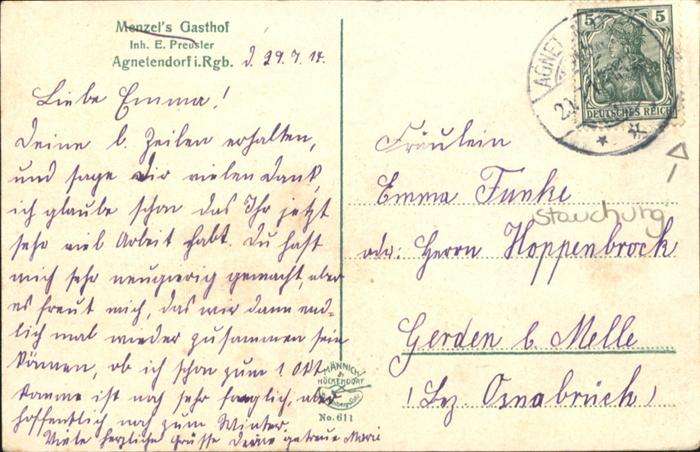 Menzel's Gasthof
Inh. E. Preusler
Agnetendorf i. Rgb.
d. 29.7.14.
Liebe Emma!
Deine l. Zeilen erhalten,
und sage Dir vielen Dank,
ich glaube schon das Ihr jetzt
sehr viel Arbeit habt. Du hast
mich sehr neugierig gemacht, aber
es freut mich, das wir dann end-
lich mal wieder zusammen sein
können, ob ich schon zum 1 Okt.
komme ist noch sehr fraglich, aber
hoffentlich noch zum Winter.
Viele herzliche Grüsse Deine getreue Marie
MÄNNICH
& HÖCKENDORF
No. 611
AGNET
5 5
DEUTSCHES REICH
Fräulein
Emma Funke
Stauchung
adr: Herrn Hoppenbrock
Gerden b. Melle
(Bez. Osnabrück)